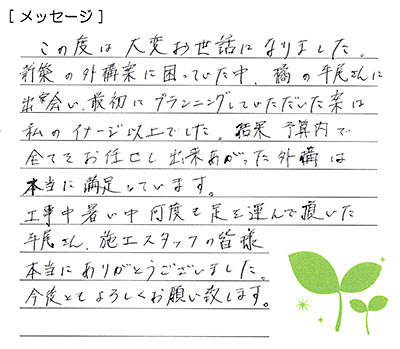 [メッセージ]
この度は大変お世話になりました。
新築の外構案に困っていた中、橘の平尾さんに
出会い、最初にプランニングしていただいた案は
私のイメージ以上でした。結果 予算内で
全てをお任せし出来あがった外構は
本当に満足しています。
工事中暑い中何度も足を運んで頂いた
平尾さん、施工スタッフの皆様
本当にありがとうございました。
今後ともよろしくお願い致します。